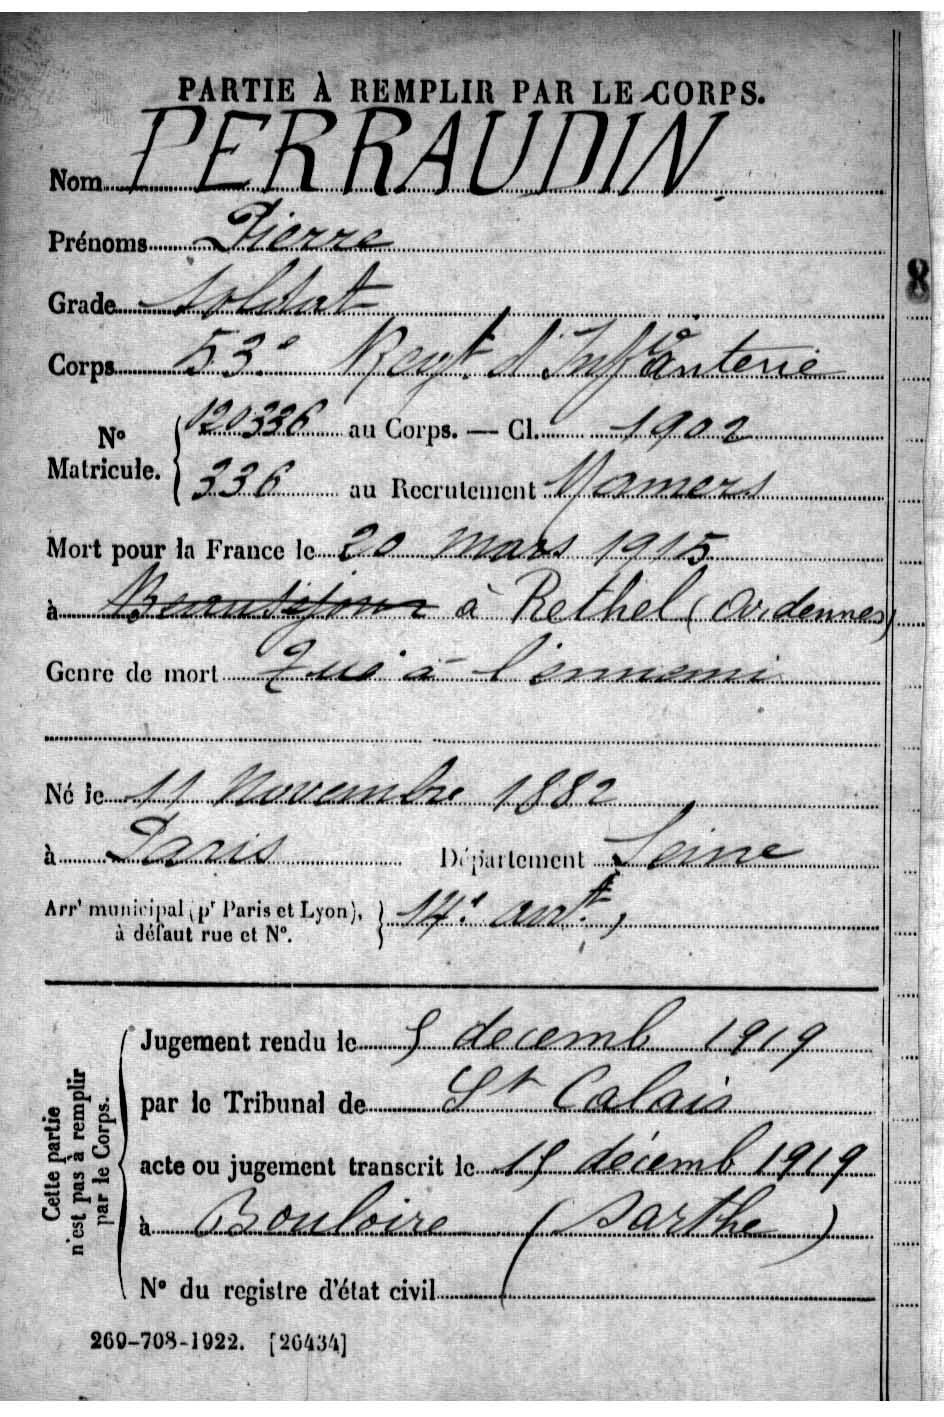 PARTIE À REMPLIR PAR LE CORPS.
Nom PERRAUDIN
Prénoms Pierre
8
Grade soldat
Corps 53e Regt. d'Infanterie
No Matricule. { 120336 au Corps. — Cl. 1902
336 au Recrutement Mamers
Mort pour la France le 20 mars 1915
à Beauséjour à Rethel (Ardennes)
Genre de mort Tué à l'ennemi
Né le 11 Novembre 1882
à Paris Département Seine
Arrt municipal (pr Paris et Lyon), à défaut rue et No. } 14e arrt.,
Cette partie n'est pas à remplir par le Corps.
Jugement rendu le 5 decemb 1919
par le Tribunal de St Calais
acte ou jugement transcrit le 15 décemb 1919
à Bouloire (Sarthe)
No du registre d'état civil
269-708-1922. [26434]